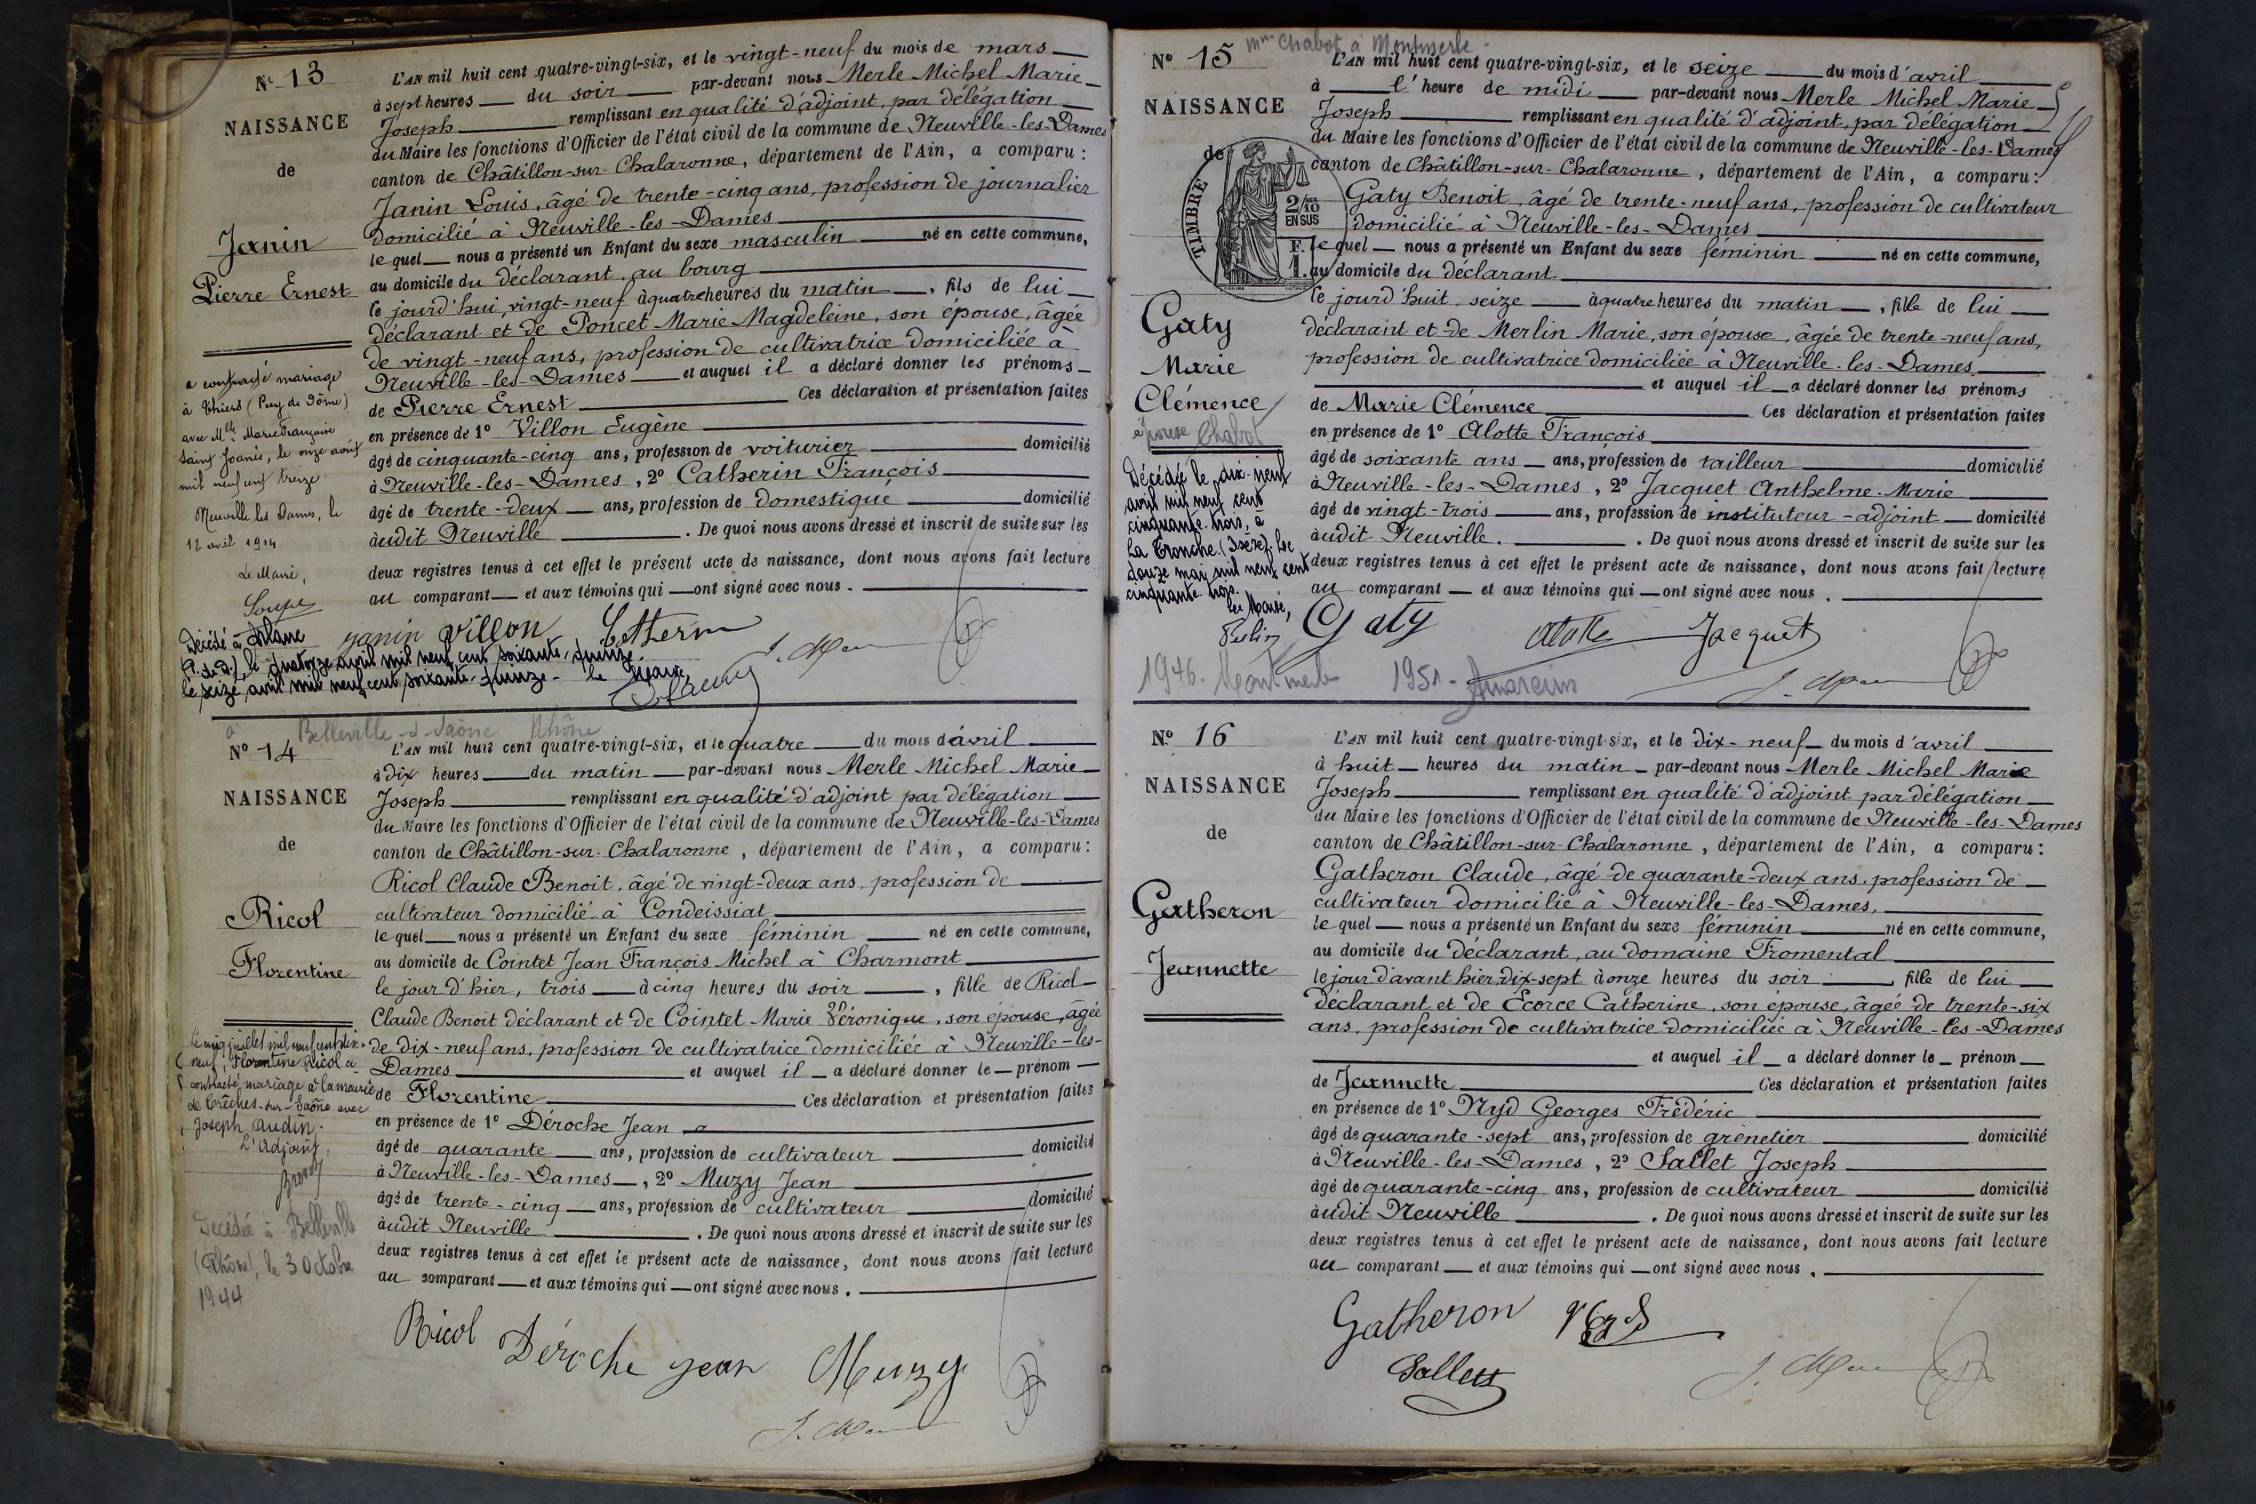 Nº 13
NAISSANCE
de
Janin
Pierre Ernest
L'AN mil huit cent quatre-vingt-six, et le vingt-neuf du mois de mars
à sept heures du soir par-devant nous Merle Michel Marie
Joseph remplissant en qualité d'adjoint, par délégation
du Maire les fonctions d'Officier de l'état civil de la commune de Neuville-les-Dames
canton de Châtillon-sur-Chalaronne, département de l'Ain, a comparu:
Janin Louis, âgé de trente-cinq ans, profession de journalier
domicilié à Neuville-les-Dames
le quel nous a présenté un Enfant du sexe masculin né en cette commune,
au domicile du déclarant, au bourg
le jourd'hui, vingt-neuf à quatre heures du matin, fils de lui
déclarant et de Poncet Marie Magdeleine, son épouse, âgée
de vingt-neuf ans, profession de cultivatrice domiciliée à
Neuville-les-Dames et auquel il a déclaré donner les prénoms
de Pierre Ernest Ces déclaration et présentation faites
en présence de 1º Villon Eugène
âgé de cinquante-cinq ans, profession de voiturier domicilié
à Neuville-les-Dames, 2º Catherin François
âgé de trente-deux ans, profession de domestique domicilié
àudit Neuville. De quoi nous avons dressé et inscrit de suite sur les
deux registres tenus à cet effet le présent acte de naissance, dont nous avons fait lecture
au comparant et aux témoins qui ont signé avec nous.
a contracté mariage
à Thiers (Puy de Dôme)
avec Mlle Marie Françoise
Saint Joanis, le onze août
mil neuf cent treize
Neuville les Dames, le
12 avril 1914
Le Maire,
Janin Villon Catherin
Décédé à Arlanc
(P. de D.), le quatorze avril mil neuf cent soixante-quinze.
le seize avril mil neuf cent soixante-quinze - le Maire,
à Belleville-s-Saône Rhône
Nº 14
NAISSANCE
de
Ricol
Florentine
L'AN mil huit cent quatre-vingt-six, et le quatre du mois d'avril
à dix heures du matin par-devant nous Merle Michel Marie
Joseph remplissant en qualité d'adjoint par délégation
du Maire les fonctions d'Officier de l'état civil de la commune de Neuville-les-Dames
canton de Châtillon-sur-Chalaronne, département de l'Ain, a comparu:
Ricol Claude Benoit, âgé de vingt-deux ans, profession de
cultivateur domicilié à Condeissiat
le quel nous a présenté un Enfant du sexe féminin né en cette commune,
au domicile de Cointet Jean François Michel à Charmont
le jour d'hier, trois à cinq heures du soir, fille de Ricol
Claude Benoit déclarant et de Cointet Marie Véronique, son épouse, âgée
de dix-neuf ans, profession de cultivatrice domiciliée à Neuville-les-
Dames et auquel il a déclaré donner le prénom
de Florentine Ces déclaration et présentation faites
en présence de 1º Déroche Jean
âgé de quarante ans, profession de cultivateur domicilié
à Neuville-les-Dames, 2º Muzy Jean
âgé de trente-cinq ans, profession de cultivateur domicilié
àudit Neuville. De quoi nous avons dressé et inscrit de suite sur les
deux registres tenus à cet effet le présent acte de naissance, dont nous avons fait lecture
au comparant et aux témoins qui ont signé avec nous.
Le cinq juillet mil neuf cent dix-
neuf, Florentine Ricol a
contracté mariage à la mairie
de Crêches-sur-Saône avec
Joseph Audin.
L'Adjoint,
Décédée à Belleville
(Rhône), le 3 Octobre
1944
Ricol Déroche Jean Muzy
Nº 15
Mme Chabot à Montmerle -
NAISSANCE
de
TIMBRE
2/10
EN SUS
F.
1.
Gaty
Marie
Clémence
épouse Chabot
L'AN mil huit cent quatre-vingt-six, et le seize du mois d'avril
à l'heure de midi par-devant nous Merle Michel Marie
Joseph remplissant en qualité d'adjoint, par délégation
du Maire les fonctions d'Officier de l'état civil de la commune de Neuville-les-Dames
canton de Châtillon-sur-Chalaronne, département de l'Ain, a comparu:
Gaty Benoit, âgé de trente-neuf ans, profession de cultivateur
domicilié à Neuville-les-Dames
le quel nous a présenté un Enfant du sexe féminin né en cette commune,
au domicile du déclarant
le jourd'huit, seize à quatre heures du matin, fille de lui
déclarant et de Merlin Marie, son épouse, âgée de trente-neuf ans,
profession de cultivatrice domiciliée à Neuville-les-Dames
et auquel il a déclaré donner les prénoms
de Marie Clémence Ces déclaration et présentation faites
en présence de 1º Alotte François
âgé de soixante ans ans, profession de tailleur domicilié
à Neuville-les-Dames, 2º Jacquet Anthelme-Marie
âgé de vingt-trois ans, profession de instituteur-adjoint domicilié
àudit Neuville. De quoi nous avons dressé et inscrit de suite sur les
deux registres tenus à cet effet le présent acte de naissance, dont nous avons fait lecture
au comparant et aux témoins qui ont signé avec nous.
Décédée le dix-neuf
avril mil neuf cent
cinquante trois, à
La Tronche (Isère). Le
douze mai mil neuf cent
cinquante trois.
Le Maire,
Gaty Alotte Jacquet
1946. Montmerle 1951.
Nº 16
NAISSANCE
de
Gatheron
Jeannette
L'AN mil huit cent quatre-vingt-six, et le dix-neuf du mois d'avril
à huit heures du matin par-devant nous Merle Michel Marie
Joseph remplissant en qualité d'adjoint par délégation
du Maire les fonctions d'Officier de l'état civil de la commune de Neuville-les-Dames
canton de Châtillon-sur-Chalaronne, département de l'Ain, a comparu:
Gatheron Claude, âgé de quarante-deux ans, profession de
cultivateur domicilié à Neuville-les-Dames,
le quel nous a présenté un Enfant du sexe féminin né en cette commune,
au domicile du déclarant, au domaine Fromental
le jour d'avant hier, dix-sept à onze heures du soir, fille de lui
déclarant et de Écorce Catherine, son épouse, âgée de trente-six
ans, profession de cultivatrice domiciliée à Neuville-les-Dames
et auquel il a déclaré donner le prénom
de Jeannette Ces déclaration et présentation faites
en présence de 1º Nyd Georges Frédéric
âgé de quarante-sept ans, profession de grènetier domicilié
à Neuville-les-Dames, 2º Sallet Joseph
âgé de quarante-cinq ans, profession de cultivateur domicilié
àudit Neuville. De quoi nous avons dressé et inscrit de suite sur les
deux registres tenus à cet effet le présent acte de naissance, dont nous avons fait lecture
au comparant et aux témoins qui ont signé avec nous.
Gatheron Nyd
Sallet